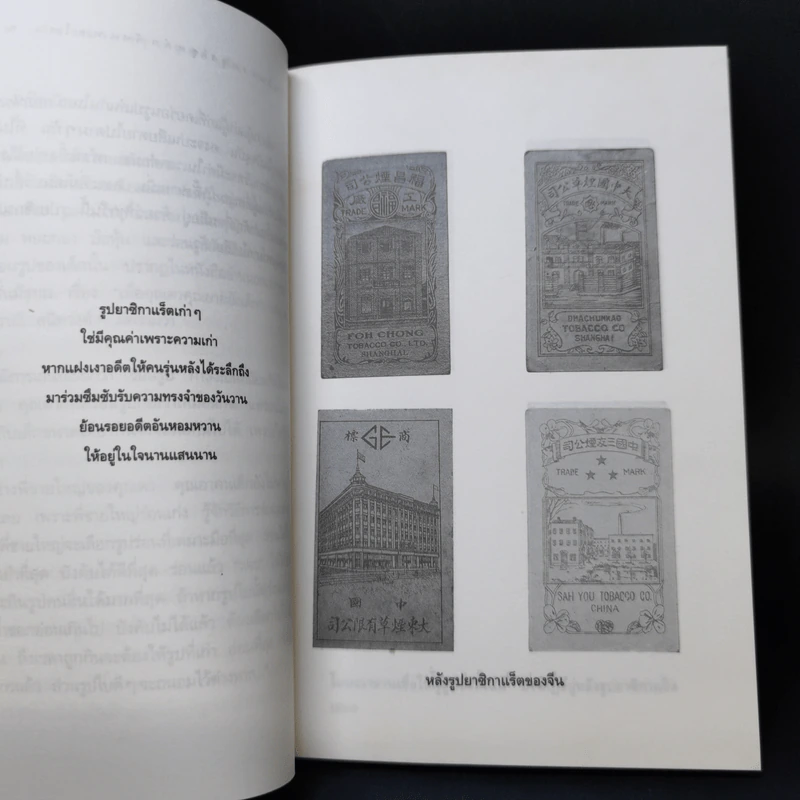 รูปยาซิกาแร็ตเก่าๆ
ใช่มีคุณค่าเพราะความเก่า
หากแฝงเงาอดีตให้คนรุ่นหลังได้ระลึกถึง
มาร่วมซึมซับรับความทรงจำของวันวาน
ย้อนรอยอดีตอันหอมหวาน
ให้อยู่ในใจนานแสนนาน
司公煙昌福
廠 工
TRADE MARK
FOH CHONG
TOBACCO CO. LTD.
SHANGHAI
司公草煙國中大
TRADE MARK
DHACHUNKAO
TOBACCO CO
SHANGHAI
標 GE 商
國 中
司公限有草煙東大
司公煙友三國中
TRADE MARK
SAH YOU TOBACCO CO.
CHINA
หลังรูปยาซิกาแร็ตของจีน